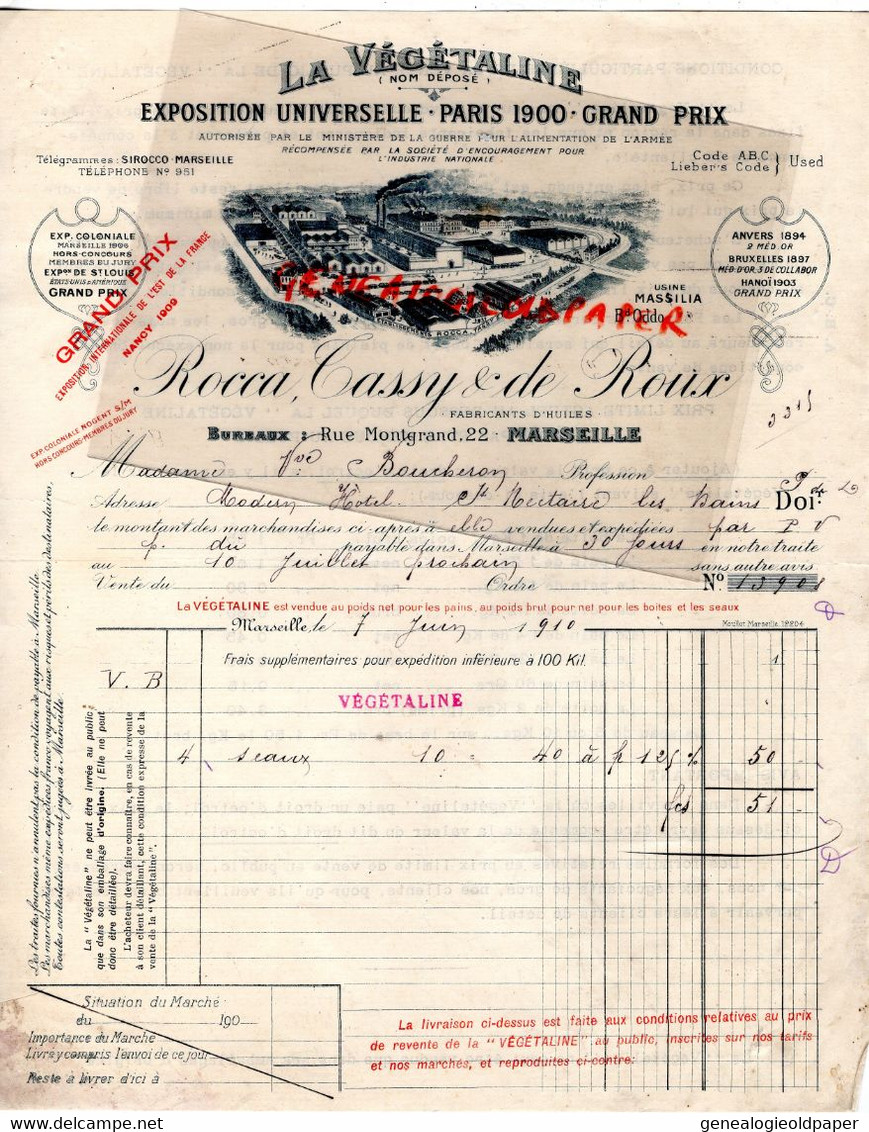 LA VÉGÉTALINE
( NOM DÉPOSÉ )
EXPOSITION UNIVERSELLE · PARIS 1900 · GRAND PRIX
AUTORISÉE PAR LE MINISTÈRE DE LA GUERRE POUR L'ALIMENTATION DE L'ARMÉE
RÉCOMPENSÉE PAR LA SOCIÉTÉ D'ENCOURAGEMENT POUR
L'INDUSTRIE NATIONALE
Télégrammes: SIROCCO-MARSEILLE
TÉLÉPHONE Nº 951
Code A.B.C.
Lieber's Code } Used
EXP. COLONIALE
MARSEILLE 1906
HORS-CONCOURS
MEMBRES DU JURY
EXPon DE St LOUIS
ÉTATS-UNIS d'AMÉRIQUE
GRAND PRIX
ANVERS 1894
2 MÉD. OR
BRUXELLES 1897
MÉD. D'OR. 3 DE COLLABOR
HANOÏ 1903
GRAND PRIX
GRAND PRIX
EXPOSITION INTERNATIONALE DE L'EST DE LA FRANCE
NANCY 1909
GENEALOGIEOLDPAPER
USINE
MASSILIA
Bd Oddo
ETABLISSEMENTS ROCCA, TASSY
Rocca, Tassy & de Roux
FABRICANTS D'HUILES
EXP. COLONIALE NOGENT S/M
HORS CONCOURS-MEMBRES DU JURY
BUREAUX : Rue Montgrand, 22 - MARSEILLE
Madame Vve Boucheron Profession
Adresse Modern Hôtel St Nectaire les Bains Doit
le montant des marchandises ci-après à elle vendues et expédiées par P V
p. dû payable dans Marseille à 30 jours en notre traite
au 10 Juillet prochain sans autre avis
Vente du Ordre Nº 13908
La VÉGÉTALINE est vendue au poids net pour les pains, au poids brut pour net pour les boîtes et les seaux
Marseille, le 7 Juin 1910
Moullot Marseille 12204
Frais supplémentaires pour expédition inférieure à 100 Kil. 1
V. B
VÉGÉTALINE
4 seaux 10 = 40 à f 125 % 50 -
fcs 51 -
Les traites fournies n'annulent pas la condition de payable à Marseille.
Les marchandises même expédiées franco voyagent aux risques et périls des destinataires.
Toutes contestations seront jugées à Marseille.
La "Végétaline" ne peut être livrée au public
que dans son emballage d'origine. (Elle ne peut
donc être détaillée).
L'acheteur devra faire connaître, en cas de revente
à son client détaillant, cette condition expresse de la
vente de la "Végétaline".
Situation du Marché:
du 190
Importance du Marché
Livré y compris l'envoi de ce jour
Reste à livrer d'ici à
La livraison ci-dessus est faite aux conditions relatives au prix
de revente de la "VÉGÉTALINE" au public, inscrites sur nos tarifs
et nos marchés, et reproduites ci-contre:
genealogieoldpaper